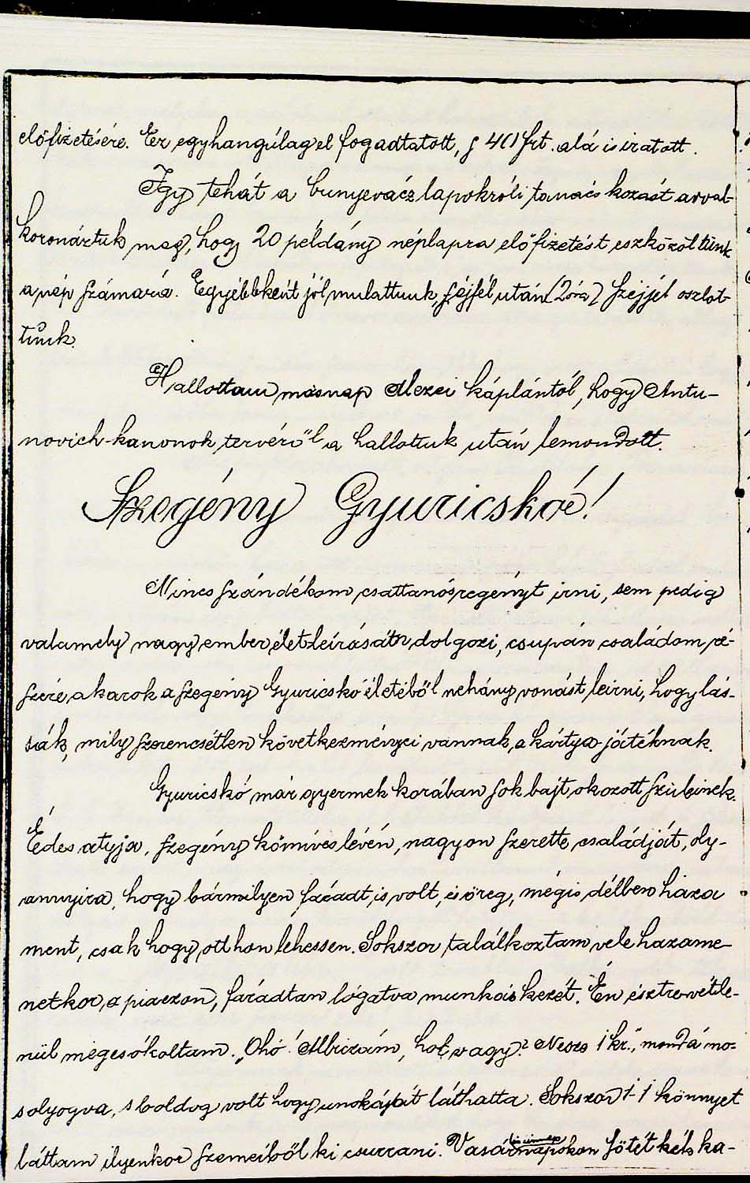 előfizetésére. Ez egyhangúlag el fogadtatott, s 40 frt. alá is iratott.
Igy tehát a bunyevácz lapokróli tanácskozást azzal
koronáztuk meg, hogy 20 példány néplapra előfizetést eszközöltünk
a nép számára. Egyébbként jól mulattunk, s éjfél után (2 óra) széjjel oszlot-
tunk.
Hallottam másnap Mezei káplántól, hogy Antu-
novich kanonok tervéről a hallottuk után lemondott.
Szegény Gyuricskó!
Nincs szándékom csattanós regényt irni, sem pedig
valamely nagy ember életleírásán dolgozni, csupán családom ré-
szére akarok a szegény Gyuricskó életéből nehány vonást leirni, hogy lás-
sák, mily szerencsétlen következményei vannak a kártya-játéknak.
Gyuricskó már gyermek korában sok bajt okozott szüleinek.
Édes atyja, szegény kőmíves lévén, nagyon szerette családját, oly-
annyira, hogy bármilyen fáradt is volt, és öreg, mégis délben haza
ment, csak hogy otthon lehessen. Sokszor találkoztam vele hazame-
netkor a piaczon, fáradtan lógatva munkás kezét. Én észrevétle-
nül megcsókoltam. "Ohó! Albiczám, hol vagy? Nesze 1 kr.", mondá mo-
solyogva, s boldog volt hogy unokáját láthatta. Sokszor 1-1 könnyet
láttam ilyenkor szemeiből ki csurrani. Vasár és ünnepnapokon sötét kék ka-